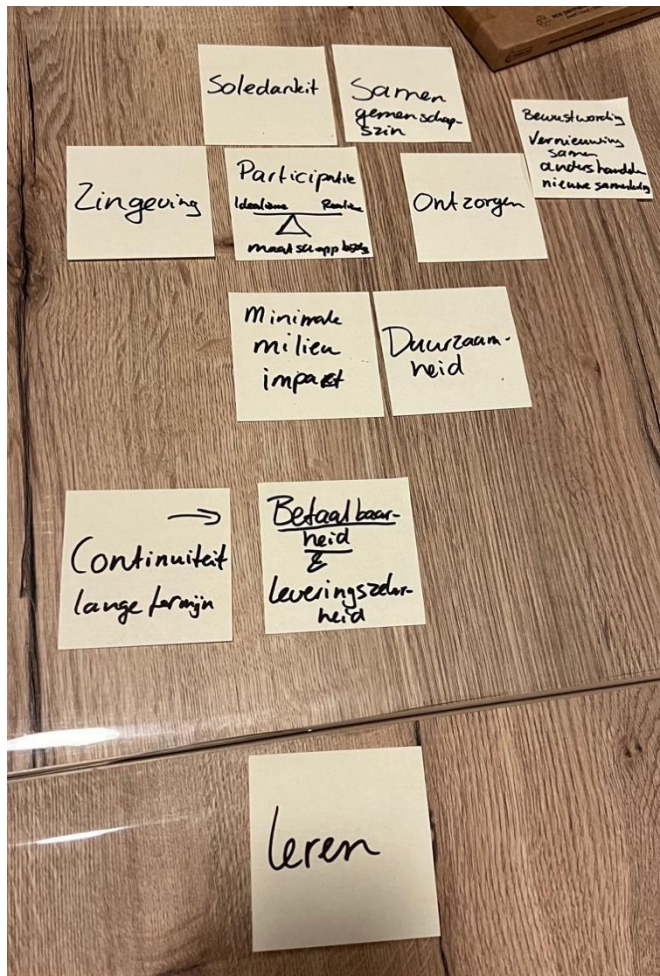 Soledariteit
Samen
gemenschap-
szin
Bewustwording
Vernieuwing
samen
anders handelen
nieuwe samenleving
Zingeving
Participatie
Idealisme Realisme
maatschappij
Ontzorgen
Minimale
milieu
impact
Duurzaam-
heid
Continuiteit
lange termijn
Betaalbaar-
heid
&
leveringszeker-
heid
leren